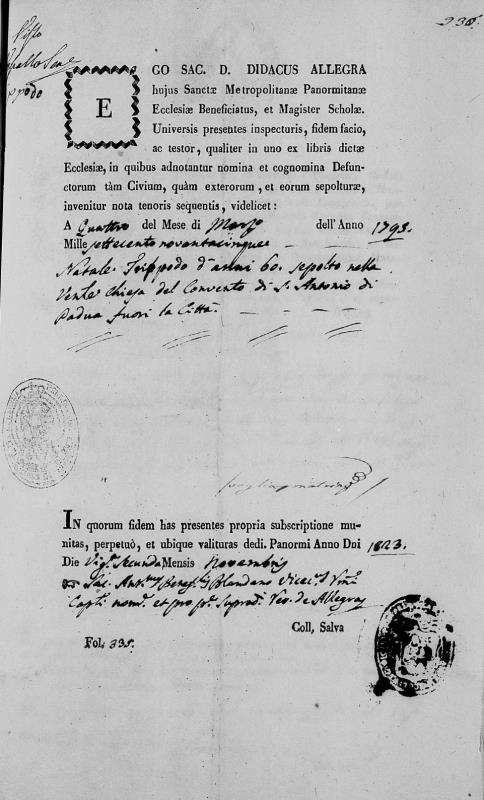 238.
Visto
EGO SAC. D. DIDACUS ALLEGRA
hujus Sanctæ Metropolitanæ Panormitanæ
Ecclesiæ Beneficiatus, et Magister Scholæ.
Universis presentes inspecturis, fidem facio,
ac testor, qualiter in uno ex libris dictæ
Ecclesiæ, in quibus adnotantur nomina et cognomina Defun-
ctorum tàm Civium, quàm exterorum, et eorum sepolturæ,
invenitur nota tenoris sequentis, videlicet:
A Quattro del Mese di Marzo dell'Anno 1795.
Mille settecento novantacinque
Natale Trippodo d'anni 60. sepolto nella
Ven.le Chiesa del Convento di S. Antonio di
Padua fuori la Città.
IN quorum fidem has presentes propria subscriptione mu-
nitas, perpetuò, et ubique valituras dedi. Panormi Anno Dni 1823.
Die Vig.a Secunda Mensis Novembris
Sac. Blandano
et pro Allegra
Coll, Salva
Fol. 335.